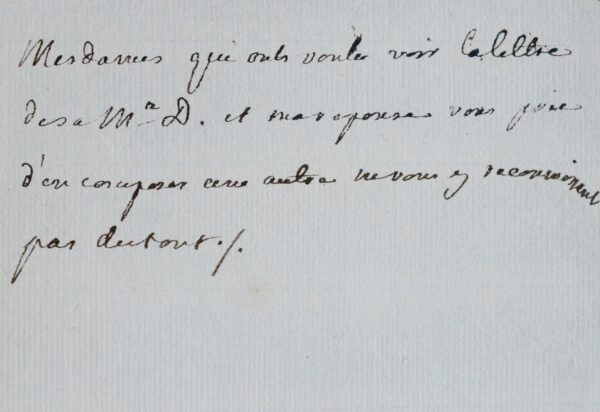 Mesdames qui onts voulu voir la lettre
de sa Mr D. et ma reponse vous prie
d'en composer une autre ne vous y reconnoissent
pas du tout ./.